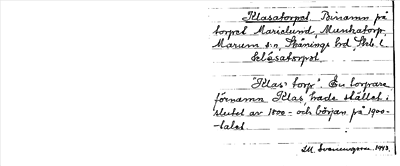 Klasatorpet Binamn på
torpet Marielund, Munkatorp,
Marum s:n, Skånings hd, Skb. l.
Klasatorpet.
"Klas' torp". En torpare,
förnamn Klas, hade stället i
slutet av 1800- och början på 1900-
talet.
1943.